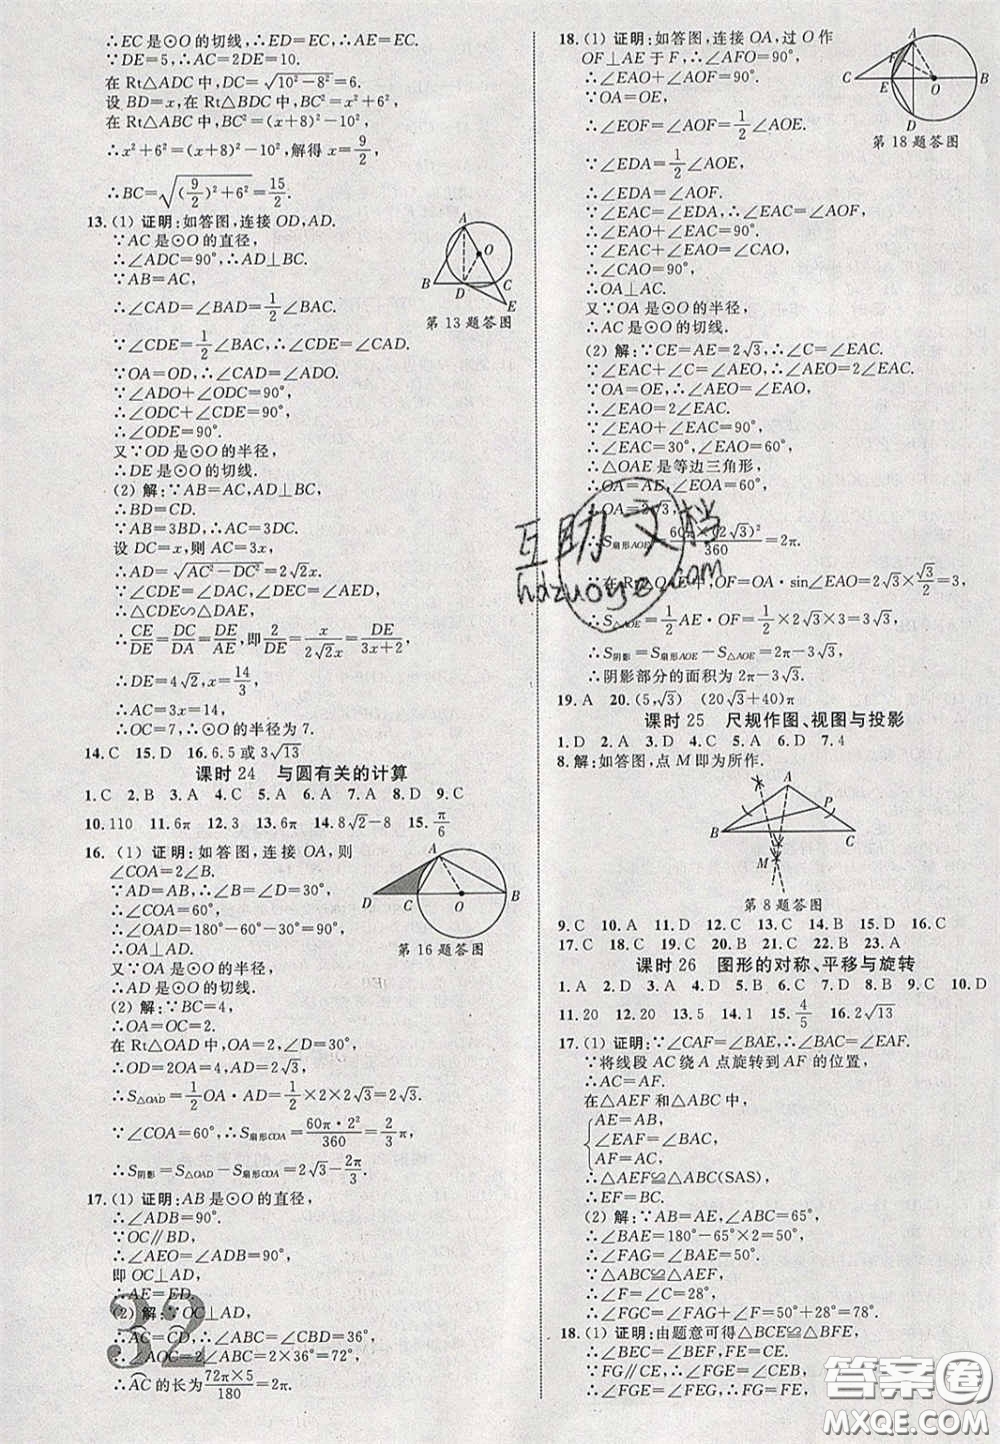 ∴EC是⊙O的切线,∴ED=EC,∴AE=EC.
∵DE=5,∴AC=2DE=10.
在Rt△ADC中,DC=√(10²-8²)=6.
设BD=x,在Rt△BDC中,BC²=x²+6²,
在Rt△ABC中,BC²=(x+8)²-10²,
∴x²+6²=(x+8)²-10²,解得x=9/2,
∴BC=√((9/2)²+6²)=15/2.
13.(1)证明:如答图,连接OD,AD.
∵AC是⊙O的直径,
∴∠ADC=90°,∴AD⊥BC.
∵AB=AC,
∴∠CAD=∠BAD=1/2∠BAC.
∵∠CDE=1/2∠BAC,∴∠CDE=∠CAD.
∵OA=OD,∴∠CAD=∠ADO.
∵∠ADO+∠ODC=90°,
∴∠ODC+∠CDE=90°,
∴∠ODE=90°.
又∵OD是⊙O的半径,
∴DE是⊙O的切线.
(2)解:∵AB=AC,AD⊥BC,
∴BD=CD.
∵AB=3BD,∴AC=3DC.
设DC=x,则AC=3x,
∴AD=√(AC²-DC²)=2√2x.
∵∠CDE=∠CAD,∠DEC=∠AED,
∴△CDE∽△DAE,
∴CE/DE=DC/DA=DE/AE,即2/DE=x/(2√2x)=DE/(3x+2),
∴DE=4√2,x=14/3,
∴AC=3x=14,
∴OC=7,∴⊙O的半径为7.
A
O
B
D
C
E
第13题答图
14.C 15.D 16.6.5或3√13
课时24 与圆有关的计算
1.C 2.B 3.A 4.C 5.A 6.A 7.A 8.D 9.C
10.110 11.6π 12.3 13.6π 14.8√2-8 15.π/6
16.(1)证明:如答图,连接OA,则
∠COA=2∠B.
∵AD=AB,∴∠B=∠D=30°,
∴∠COA=60°,
∴∠OAD=180°-60°-30°=90°,
∴OA⊥AD.
又∵OA是⊙O的半径,
∴AD是⊙O的切线.
(2)解:∵BC=4,
∴OA=OC=2.
在Rt△OAD中,OA=2,∠D=30°,
∴OD=2OA=4,AD=2√3,
∴S△OAD=1/2OA·AD=1/2×2×2√3=2√3.
∵∠COA=60°,∴S扇形COA=60π·2²/360=2/3π,
∴S阴影=S△OAD-S扇形COA=2√3-2π/3.
A
D
C
O
B
第16题答图
17.(1)证明:∵AB是⊙O的直径,
∴∠ADB=90°.
∵OC∥BD,
∴∠AEO=∠ADB=90°,
即OC⊥AD,
∴AE=ED.
(2)解:∵OC⊥AD,
∴AC=CD,∴∠ABC=∠CBD=36°,
∴∠AOC=2∠ABC=2×36°=72°,
∴AC的长为72π×5/180=2π.
32
18.(1)证明:如答图,连接OA,过O作
OF⊥AE于F,∴∠AFO=90°,
∴∠EAO+∠AOF=90°.
∵OA=OE,
∴∠EOF=∠AOF=1/2∠AOE.
∵∠EDA=1/2∠AOE,
∴∠EDA=∠AOF.
∵∠EAC=∠EDA,∴∠EAC=∠AOF,
∴∠EAO+∠EAC=90°.
∵∠EAC+∠EAO=∠CAO,
∴∠CAO=90°,
∴OA⊥AC.
又∵OA是⊙O的半径,
∴AC是⊙O的切线.
(2)解:∵CE=AE=2√3,∴∠C=∠EAC.
∵∠EAC+∠C=∠AEO,∴∠AEO=2∠EAC.
∵OA=OE,∴∠AEO=∠EAO,
∴∠EAO=2∠EAC.
∵∠EAO+∠EAC=90°,
∴∠EAC=30°,∠EAO=60°,
∴△OAE是等边三角形,
∴OA=AE,∠EOA=60°,
∴OA=2√3,
∴S扇形AOE=60π×(2√3)²/360=2π.
∴在Rt△OAE中,OF=OA·sin∠EAO=2√3×√3/2=3,
∴S△AOE=1/2AE·OF=1/2×2√3×3=3√3,
∴S阴影=S扇形AOE-S△AOE=2π-3√3,
∴阴影部分的面积为2π-3√3.
A
F
C
E
O
B
D
第18题答图
19.A 20.(5,√3) (20√3+40)π
课时25 尺规作图、视图与投影
1.D 2.A 3.D 4.C 5.D 6.A 7.4
8.解:如答图,点M即为所作.
A
P
B
C
M
第8题答图
9.C 10.A 11.D 12.C 13.C 14.B 15.D 16.C
17.C 18.C 19.B 20.D 21.C 22.B 23.A
课时26 图形的对称、平移与旋转
1.A 2.D 3.C 4.A 5.B 6.D 7.D 8.D 9.C 10.D
11.20 12.20 13.5 14.1 15.4/5 16.2√13
17.(1)证明:∵∠CAF=∠BAE,∴∠BAC=∠EAF.
∵将线段AC绕A点旋转到AF的位置,
∴AC=AF.
在△AEF和△ABC中,
AE=AB,
∠EAF=∠BAC,
AF=AC,
∴△AEF≌△ABC(SAS),
∴EF=BC.
(2)解:∵AB=AE,∠ABC=65°,
∴∠BAE=180°-65°×2=50°,
∴∠FAG=∠BAE=50°.
∵△ABC≌△AEF,
∴∠F=∠C=28°,
∴∠FGC=∠FAG+∠F=50°+28°=78°.
18.(1)证明:由题意可得△BCE≌△BFE,
∴∠BEC=∠BEF,FE=CE.
∵FG∥CE,∴∠FGE=∠CEB,
∴∠FGE=∠FEG,∴FG=FE,
互助文档
hazuoye.com
答案圈
MXQE.COM